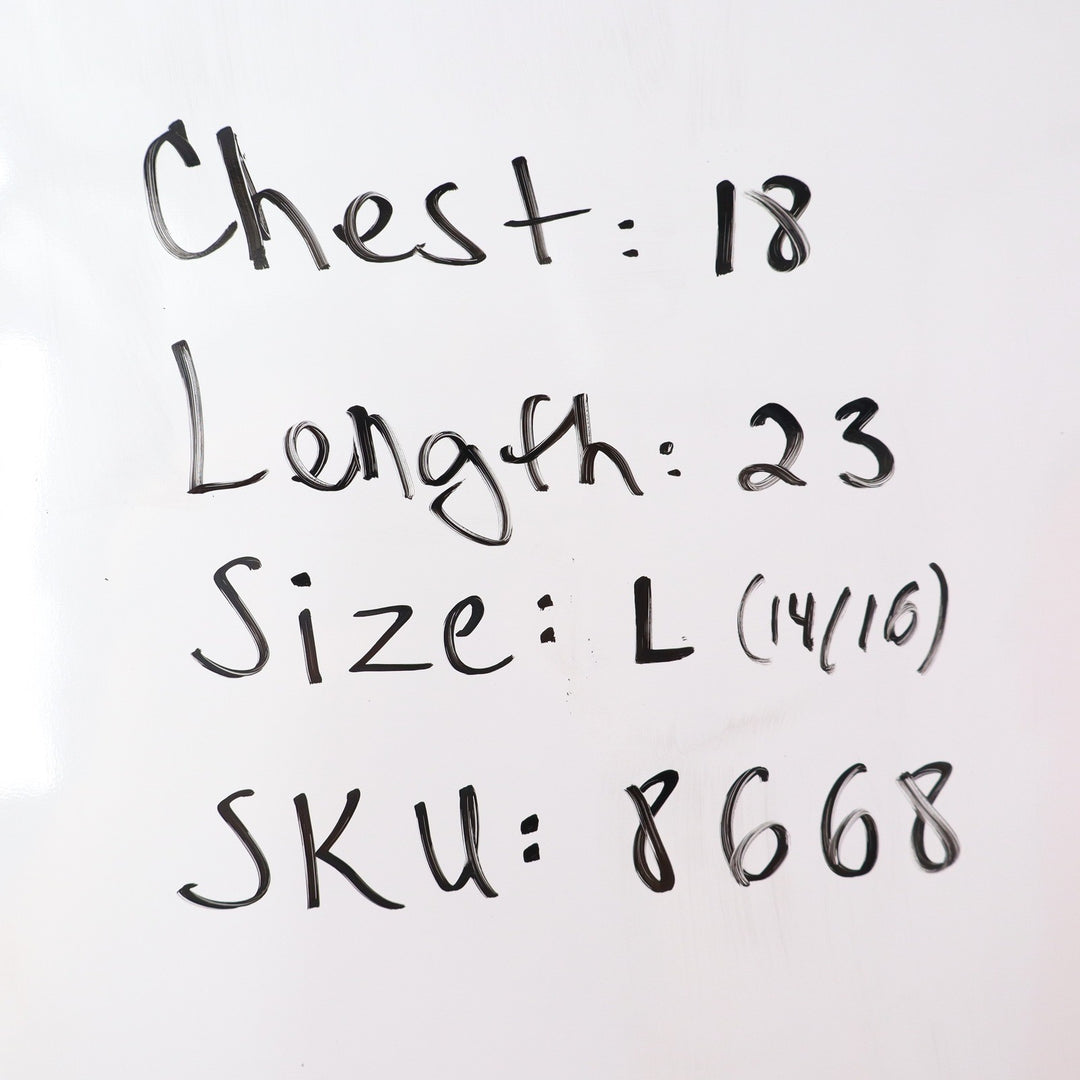 Chest: 18
Length: 23
Size: L (14/16)
SKU: 8668